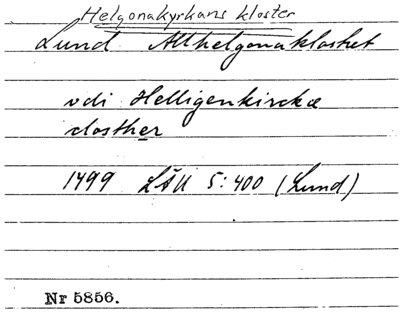 Helgonakyrkans kloster
Lund Allhelgonaklostret
vdi Helligenkirckæ
closther
1499 LÄU 5:400 (Lund)
Nr 5856.